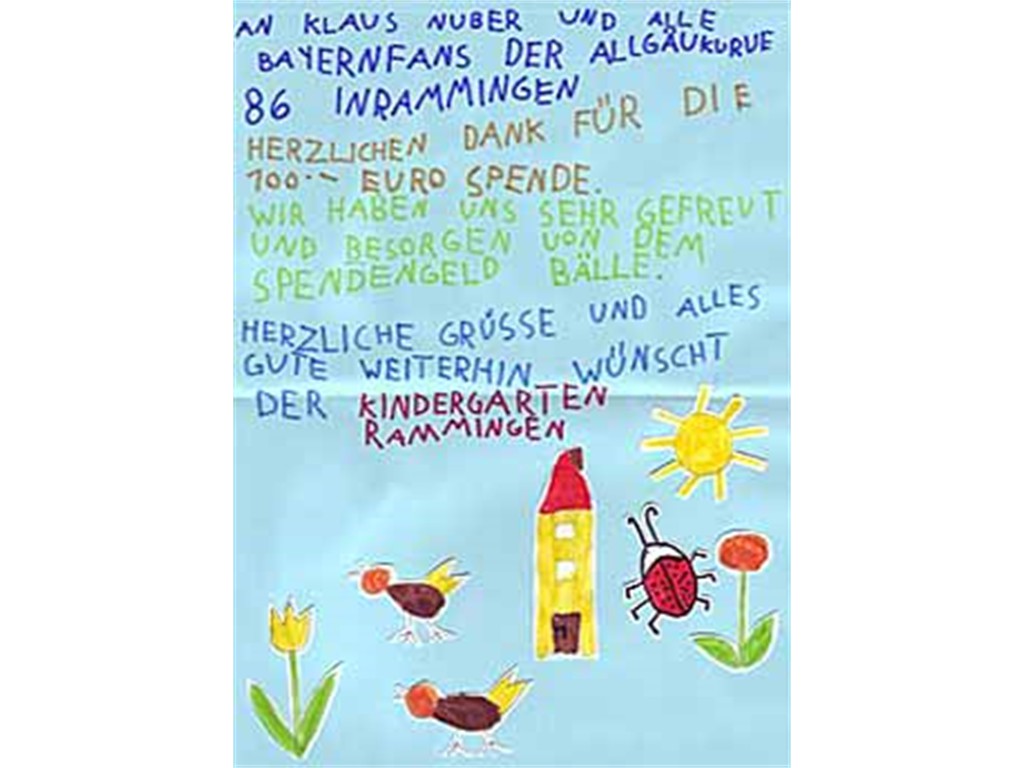 AN KLAUS NUBER UND ALLE
BAYERNFANS DER ALLGÄUKURVE
86 INRAMMINGEN
HERZLICHEN DANK FÜR DIE
100.-- EURO SPENDE.
WIR HABEN UNS SEHR GEFREUT
UND BESORGEN VON DEM
SPENDENGELD BÄLLE.
HERZLICHE GRÜSSE UND ALLES
GUTE WEITERHIN WÜNSCHT
DER KINDERGARTEN
RAMMINGEN